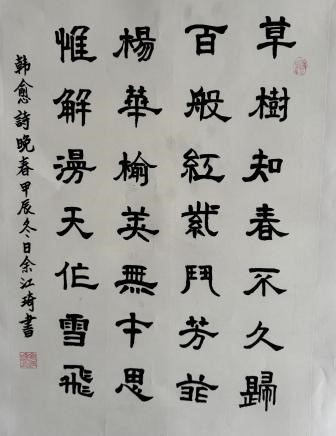 草樹知春不久歸
百般紅紫鬥芳菲
楊華榆莢無才思
惟解漫天作雪飛
韩愈詩晚春甲辰冬日余江琦書